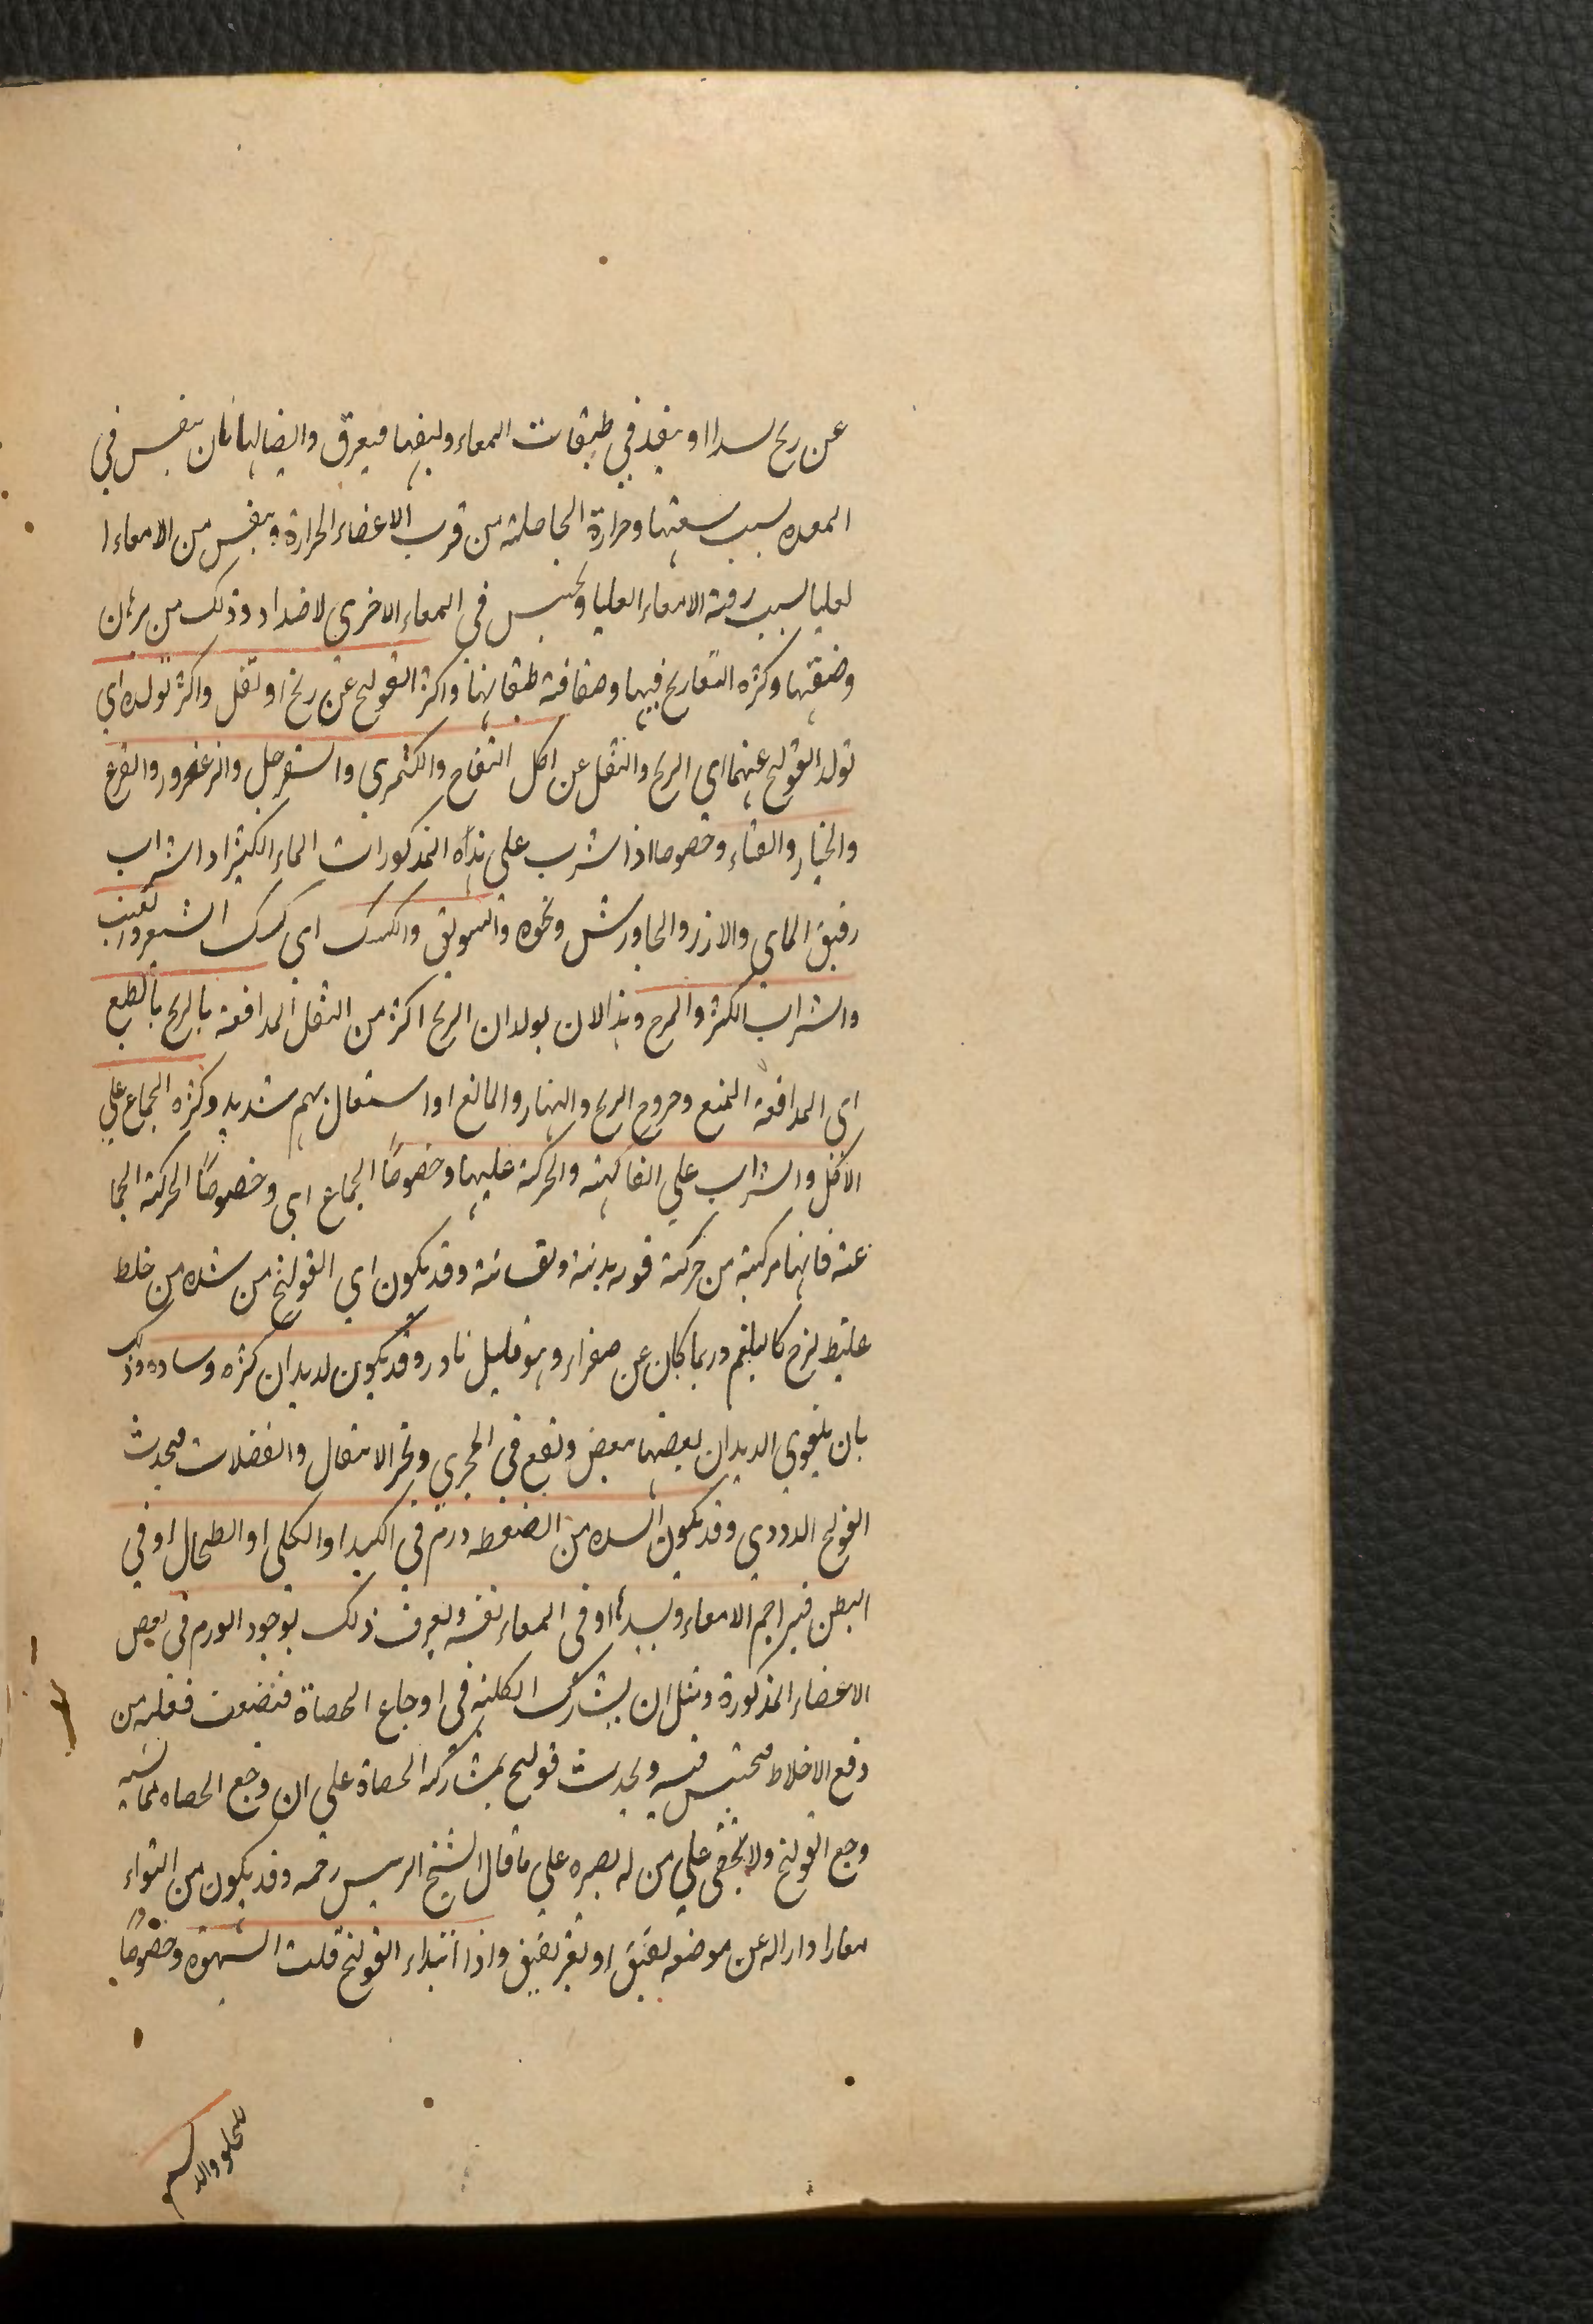 عن ريح سدا او ينفذ في طبقات المعاء وليفها فيعرق وايضا لها نان ينفس في
المعده بسبب سعتها وحرارة الحاصلة من قرب الاعضاء الحرارة وينفس من الامعاء ا
لعليا بسبب رقة الامعاء العليا ويحتبس في المعاء الاخرى لاضداد وذلك من بر
وضيقها وكثره التعاريج فيها وصفاقة طبقاتها واكثر القولنج عن ريح او ثفل واكثر تولده اي
تولد القولنج عنهما اي الريح والثفل عن اكل التفاح والكثمري والسفرجل والزعرور والقرع
والخيار والقثاء وخصوصا اذا شرب على هذه المذكورات الماء الكثير او الشراب
رقيق الماى والارز والجاورش ونحوه والسويق والكشك اى كشك الشعير والعنب
والشراب الكثر والمزج وهذا لان يولدان الريح اكثر من الثفل المدافعة بالريح بالطبع
اى المدافعة المنع وخروج الريح والنهار والمانع او استعمال بهم شديد وكثره الجماع على
الاكل والشراب علي الفاكهة والحركة عليها وخصوصًا الجماع اى وخصوصًا الحركة الجما
عة فانها مركبة من حركة قويه بدنية ونفسانية وقد يكون اي القولنج من سده من خلط
غليظ لزج كالبلغم وربما كان عن صفراء وهو قليل نادر وقد يكون لديدان كثره وساده وذلك
بان يلتوي الديدان بعضها ببعض وتقع في المجرى وتحر الاثفال والفضلات فيحدث
القولنج الدودي وقد يكون السده من الضغط ورم في الكبد او الكلى او الطحال او في
البطن فيزاحم الامعاء ويسدها او في المعاء نفسه ويعرف ذلك بوجود الورم في بعض
الاعضاء المذكورة ومثل ان يشارك الكلية في اوجاع الحصاة فتضعف فعله من
دفع الاخلاط فيحتبس فيه ويحدث قولنج بمشاركة الحصاة علي ان وجع الحصاه مما
وجع القولنج ولا يخفى علي من له بصره علي ما قال الشيخ الرييس رحمه وقد يكون من التواء
معا او اراله عن موضعه بفتق او بغير فتق واذا ابتداء القولنج قلت الشهوه وخصوصًا
للحلو والدسم